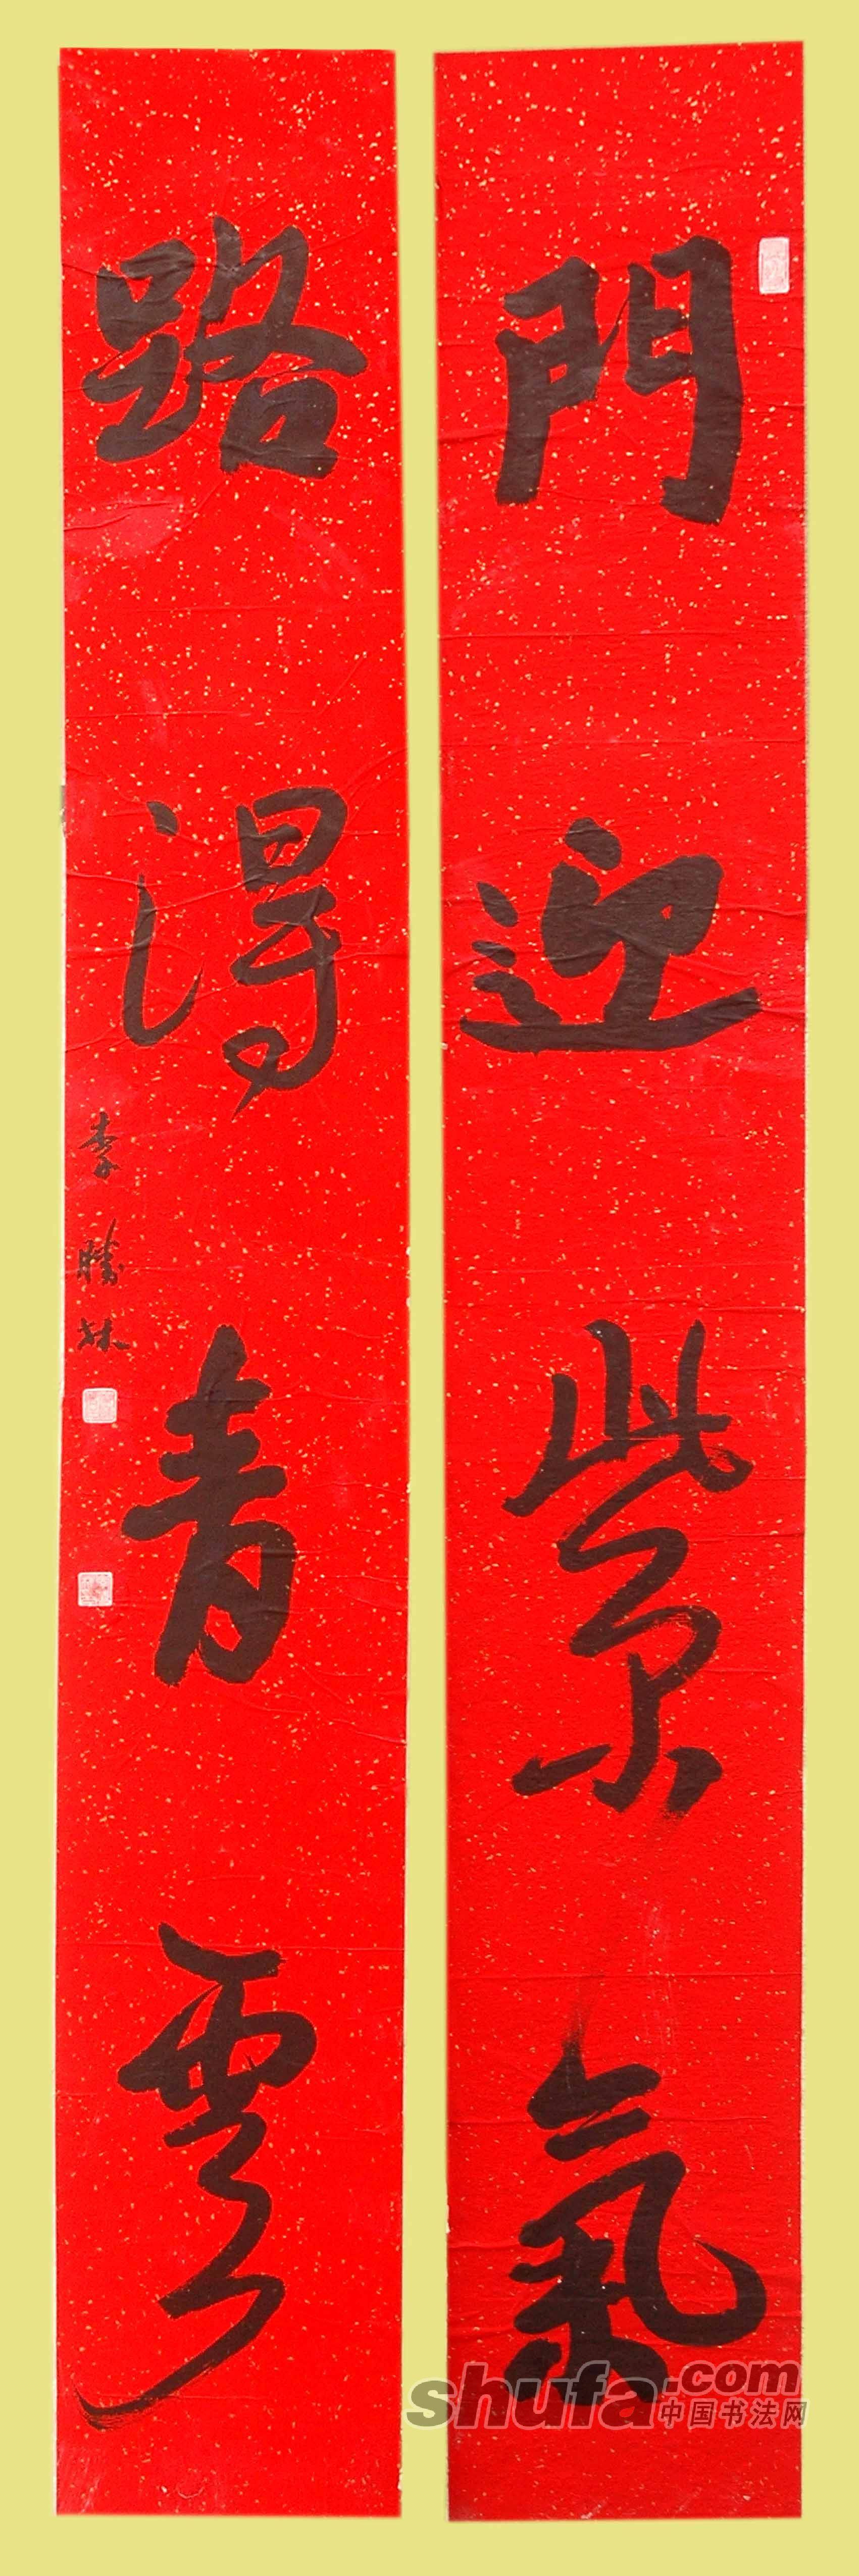 門迎紫氣
路得青雲
李勝林
shufa.com
中国书法网